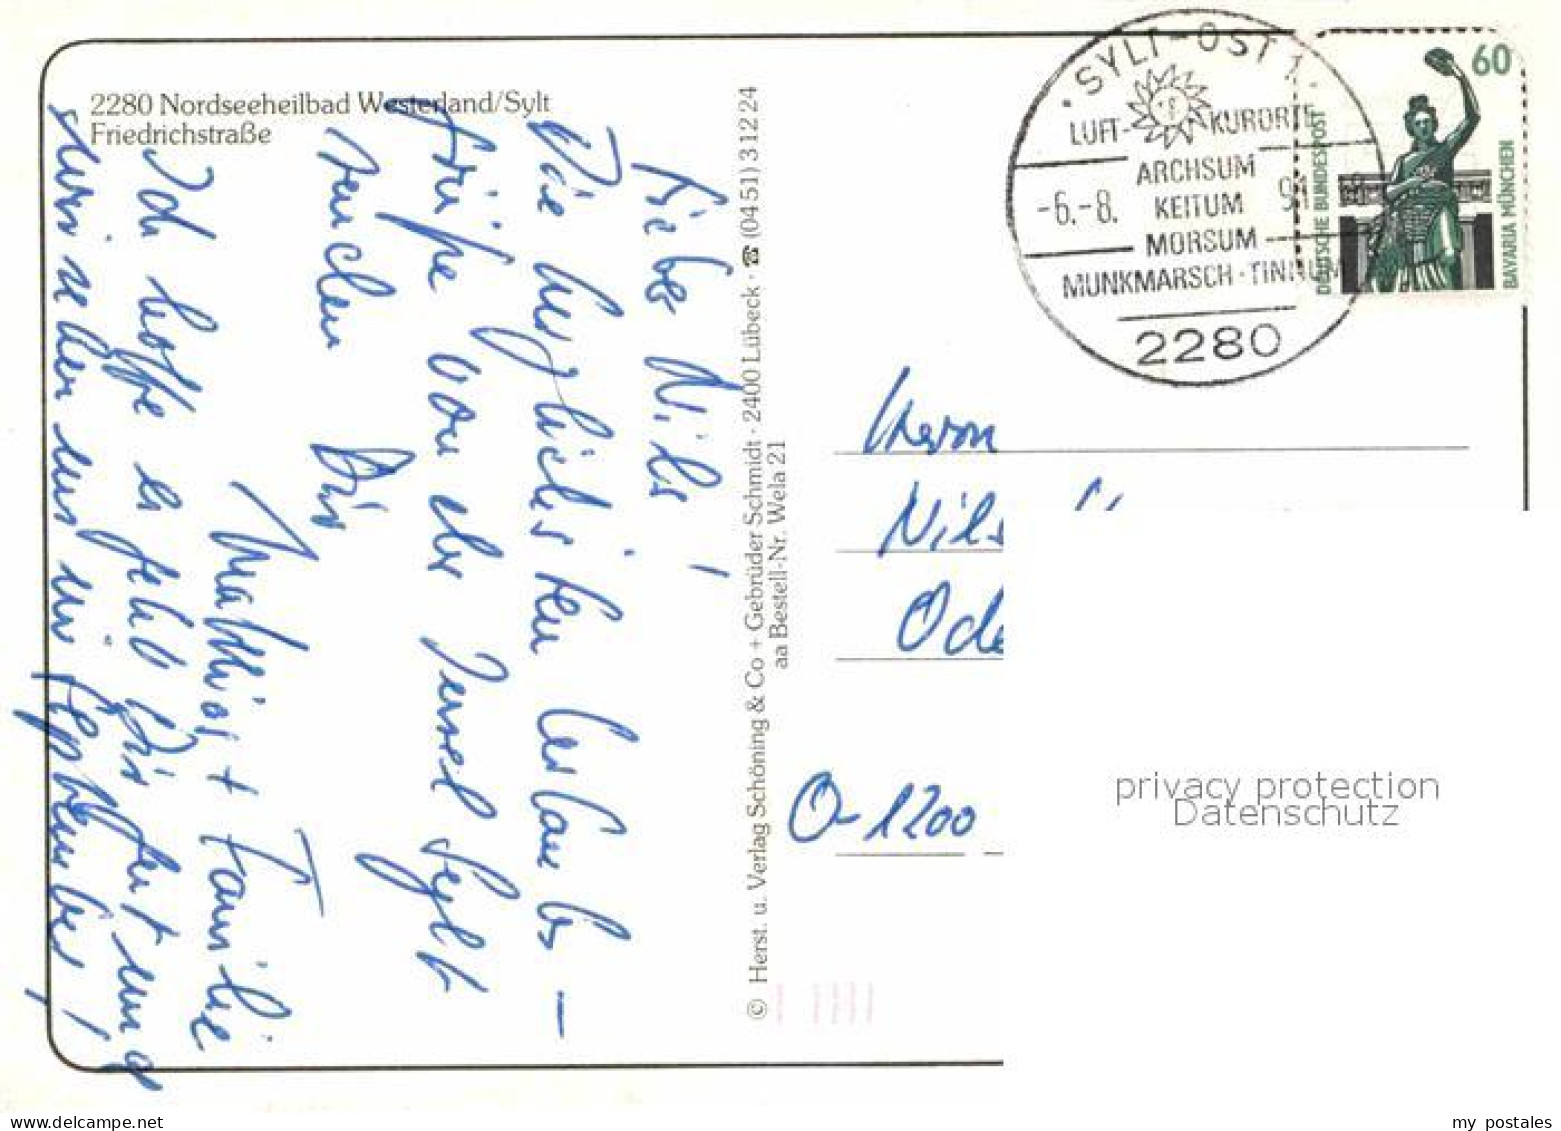 2280 Nordseeheilbad Westerland/Sylt
Friedrichstraße
Lieber Nils!
Die herzlichsten Urlaubs-
grüße von der Insel Sylt
senden Dir
Mathias + Familie
Ich hoffe es geht Dir gut und
wir sehen uns im September!
© Herst. u. Verlag Schöning & Co + Gebrüder Schmidt · 2400 Lübeck · ☎ (0451) 31224
aa Bestell-Nr. Wela 21
SYLT-OST 1
LUFT- KURORTE
ARCHSUM
-6.-8. KEITUM 91
MORSUM
MUNKMARSCH · TINNUM
2280
60
DEUTSCHE BUNDESPOST
BAVARIA MÜNCHEN
Herrn
Nils
Ode
O-1200
privacy protection
Datenschutz
my postales